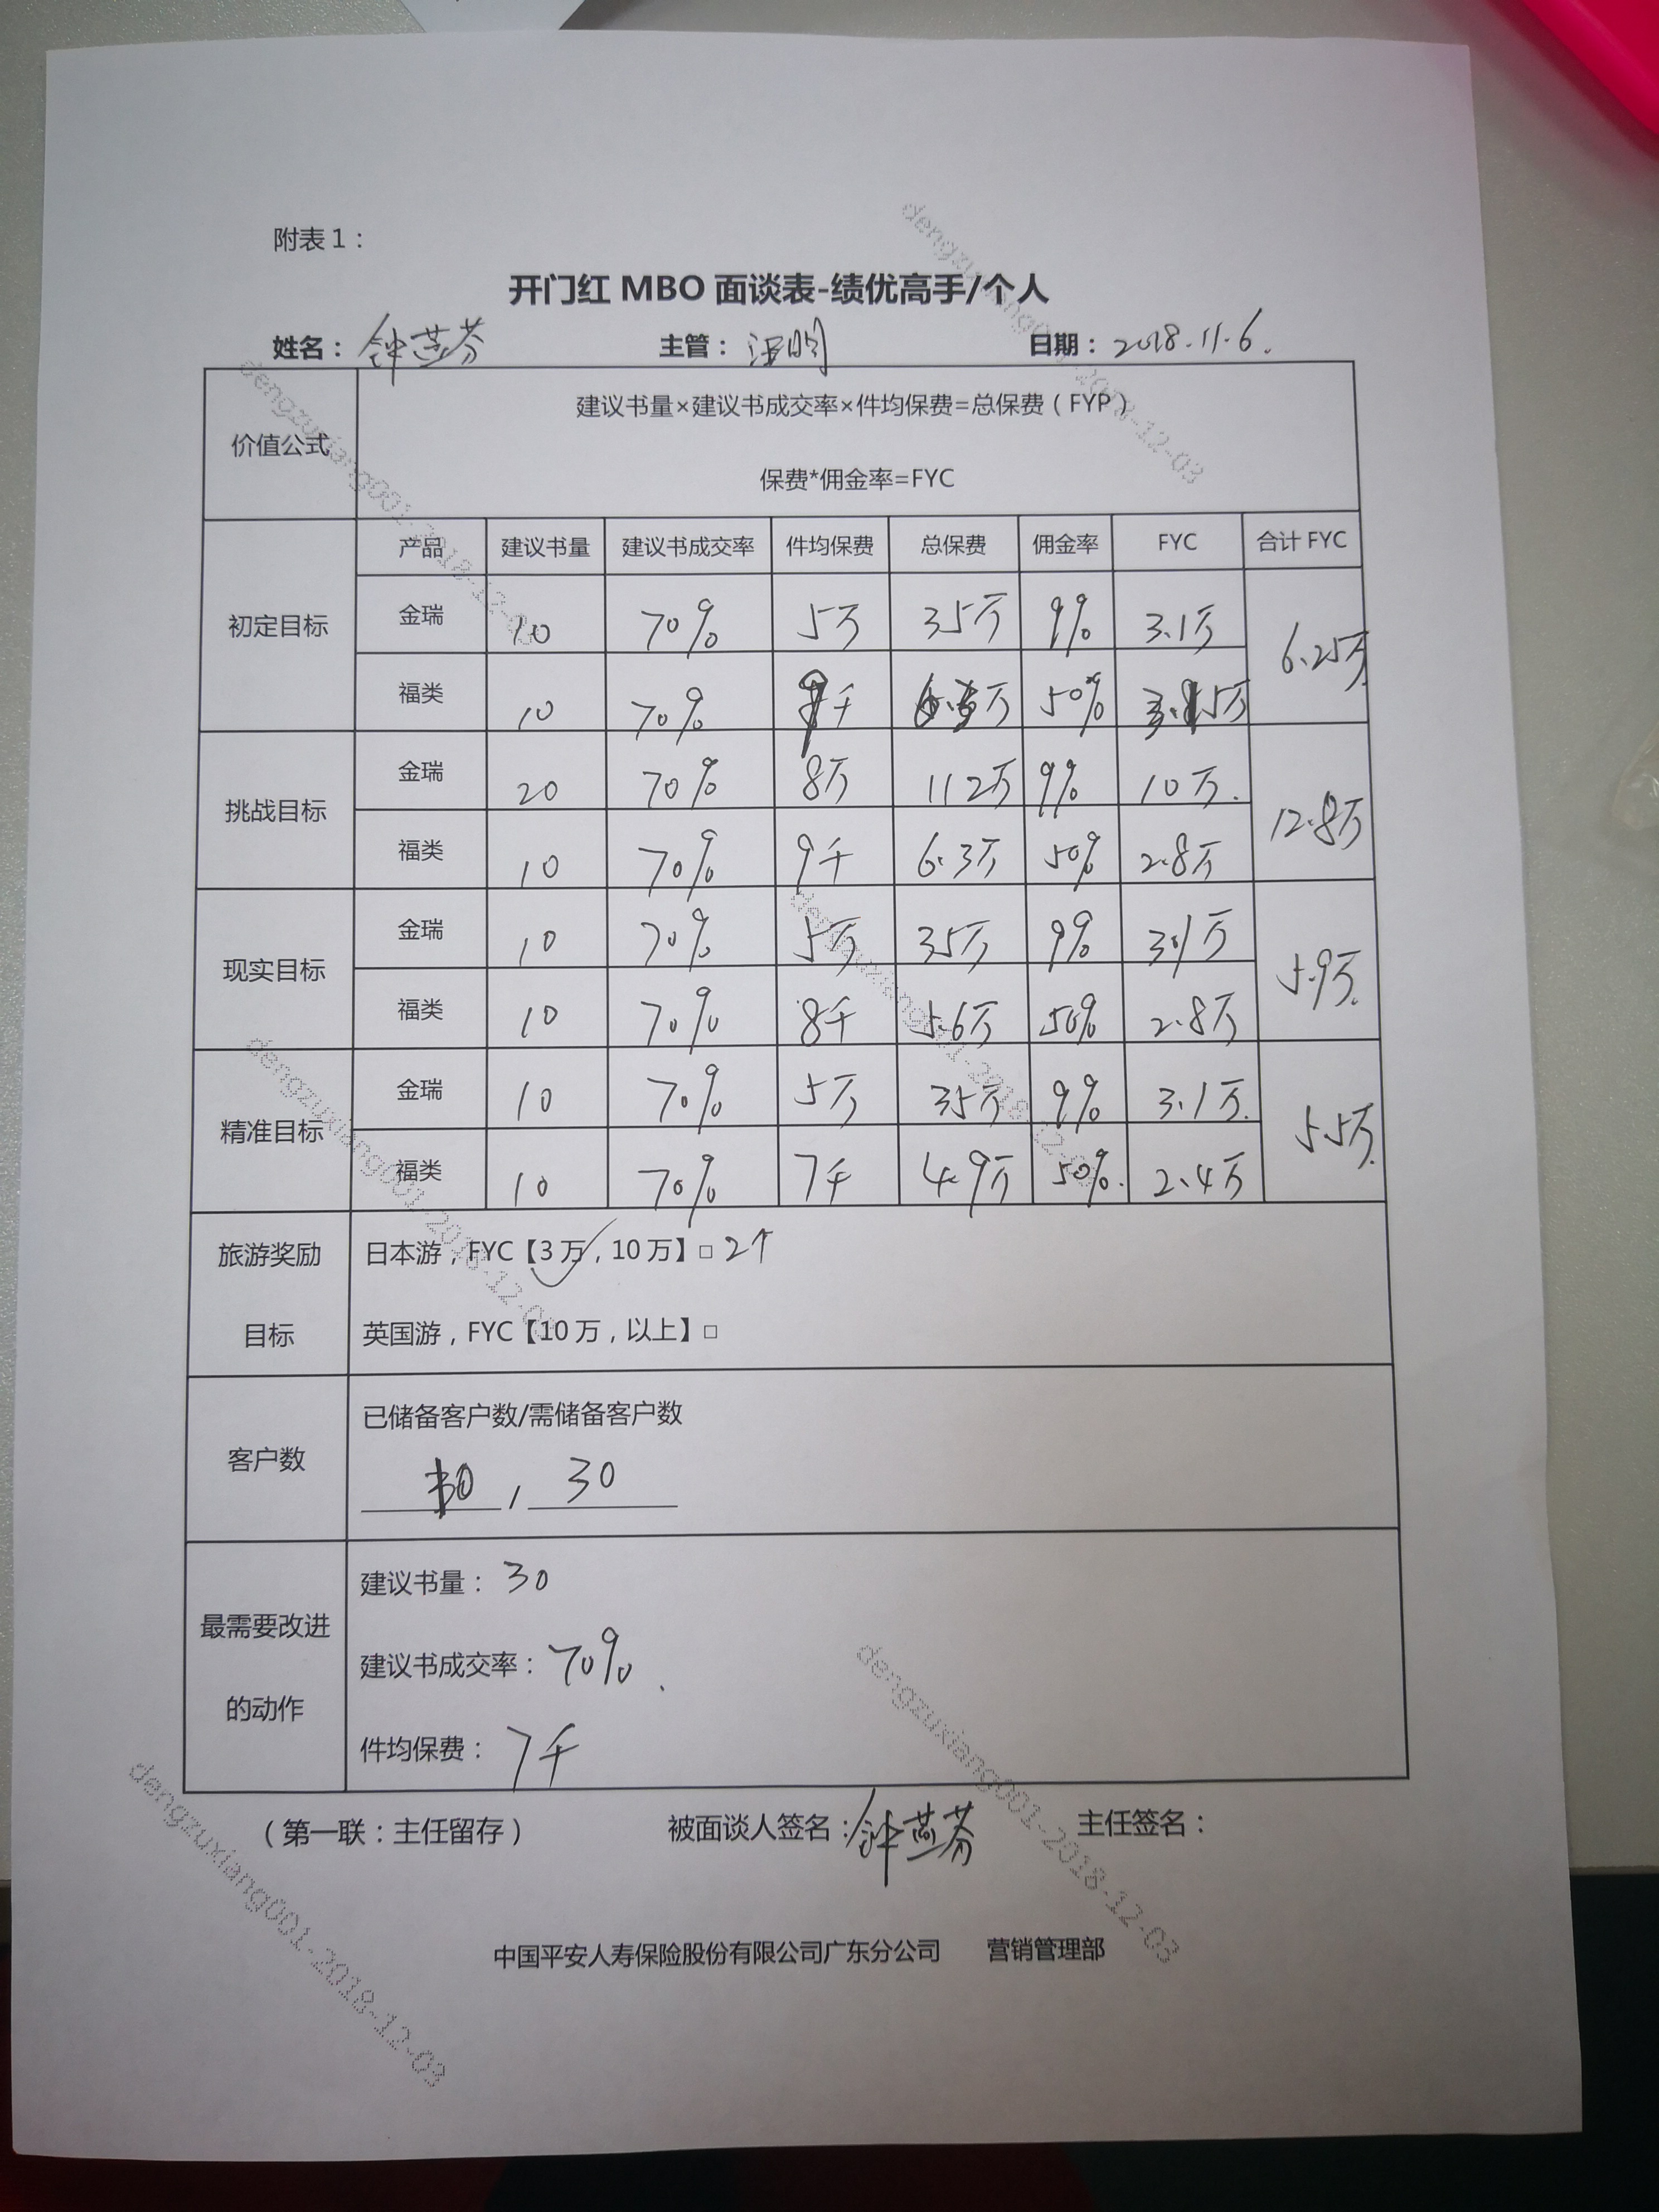 附表1：
开门红 MBO 面谈表-绩优高手/个人
姓名：钟燕芬 主管： 日期：2018.11.6.
价值公式
建议书量×建议书成交率×件均保费=总保费（FYP）
保费*佣金率=FYC
产品 建议书量 建议书成交率 件均保费 总保费 佣金率 FYC 合计 FYC
初定目标
金瑞 10 70% 5万 35万 9% 3.1万 6.25万
福类 10 70% 9千 50%
挑战目标
金瑞 20 70% 8万 112万 9% 10万. 12.8万
福类 10 70% 9千 6.3万 50% 2.8万
现实目标
金瑞 10 70% 5万 35万 9% 3.1万 5.9万.
福类 10 70% 8千 5.6万 50% 2.8万
精准目标
金瑞 10 70% 5万 35万 9% 3.1万. 5.5万.
福类 10 70% 7千 4.9万 50%. 2.4万
旅游奖励
目标
日本游，FYC【3万，10万】□ 2个
英国游，FYC【10万，以上】□
客户数
已储备客户数/需储备客户数
, 30
最需要改进
的动作
建议书量：30
建议书成交率：70%.
件均保费：7千
（第一联：主任留存） 被面谈人签名：钟燕芬 主任签名：
中国平安人寿保险股份有限公司广东分公司 营销管理部
dengzuxiang001-2018-12-03
dengzuxiang001-2018-12-03
dengzuxiang001-2018-12-03
dengzuxiang001-2018-12-03
dengzuxiang001-2018-12-03
dengzuxiang001-2018-12-03